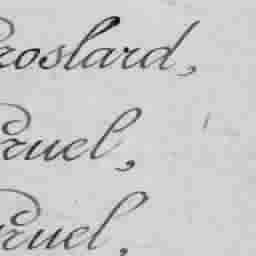 roslard,
ruel,
ruel,